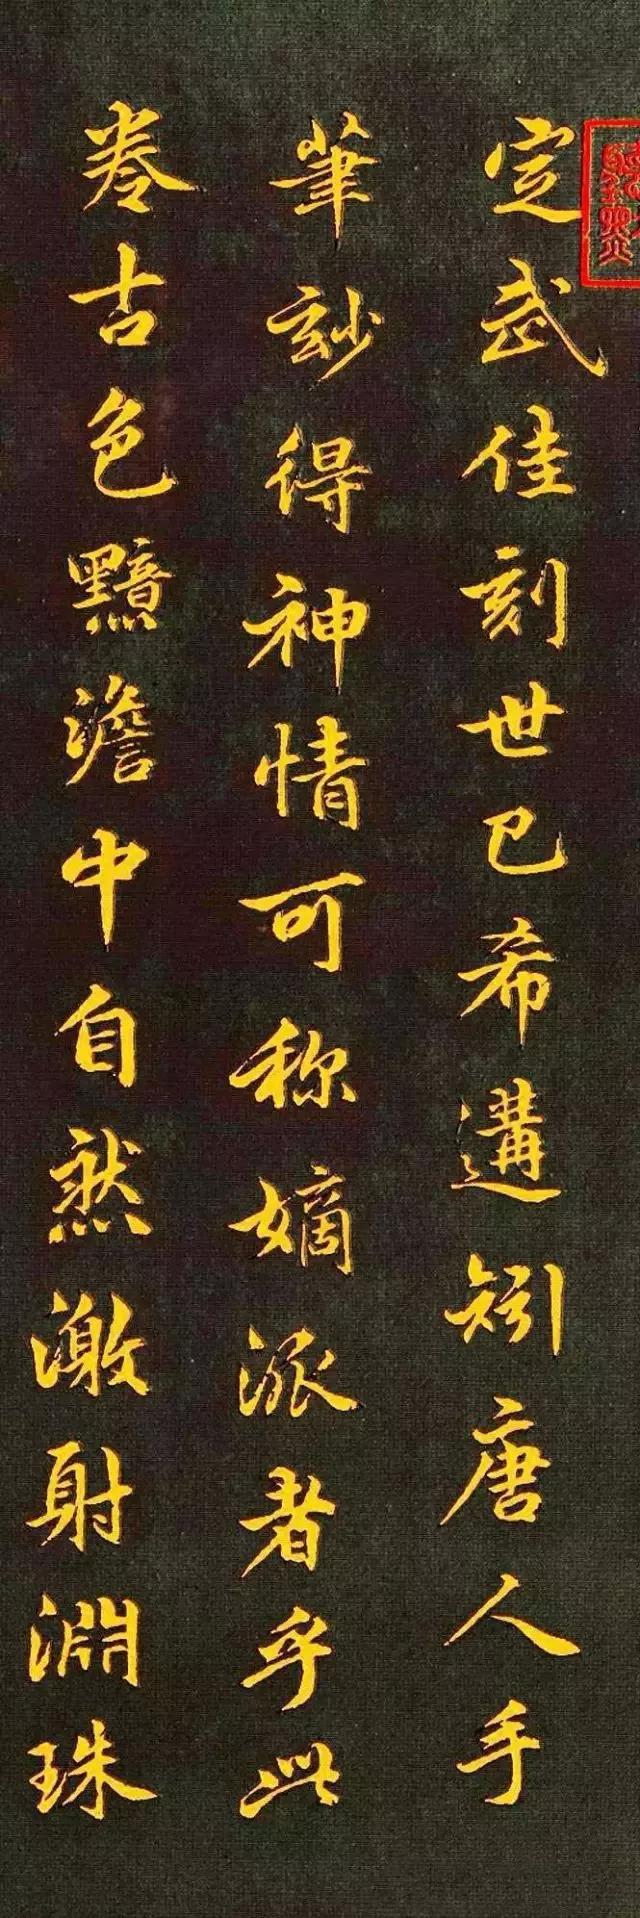 定武佳刻世已希遘矧唐人手
筆玅得神情可称嫡派者乎此
卷古色黯澹中自然激射淵珠